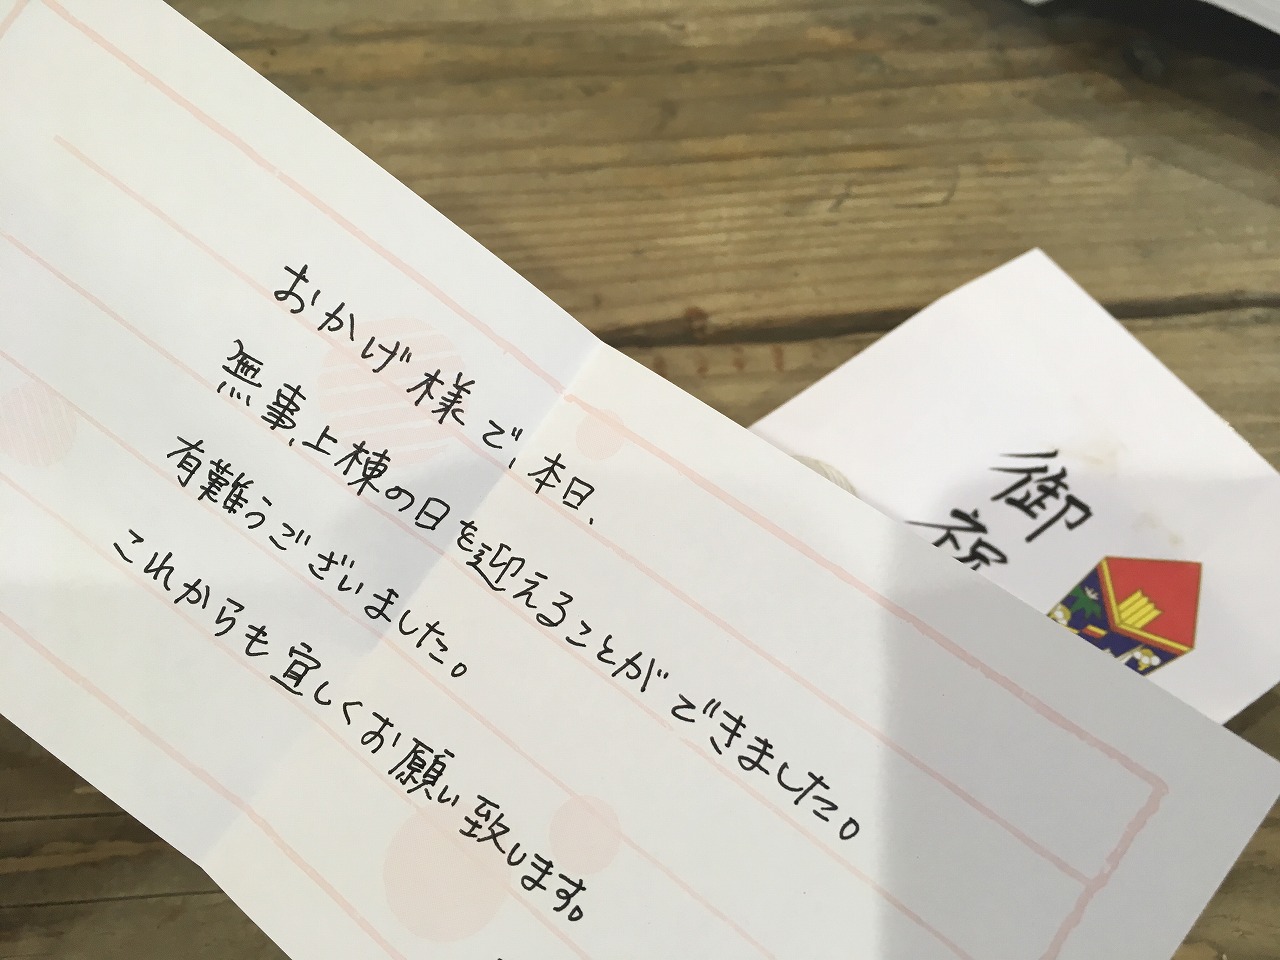 おかげ様で、本日、
無事、上棟の日を迎えることができました。
有難うございました。
これからも宜しくお願い致します。
御祝